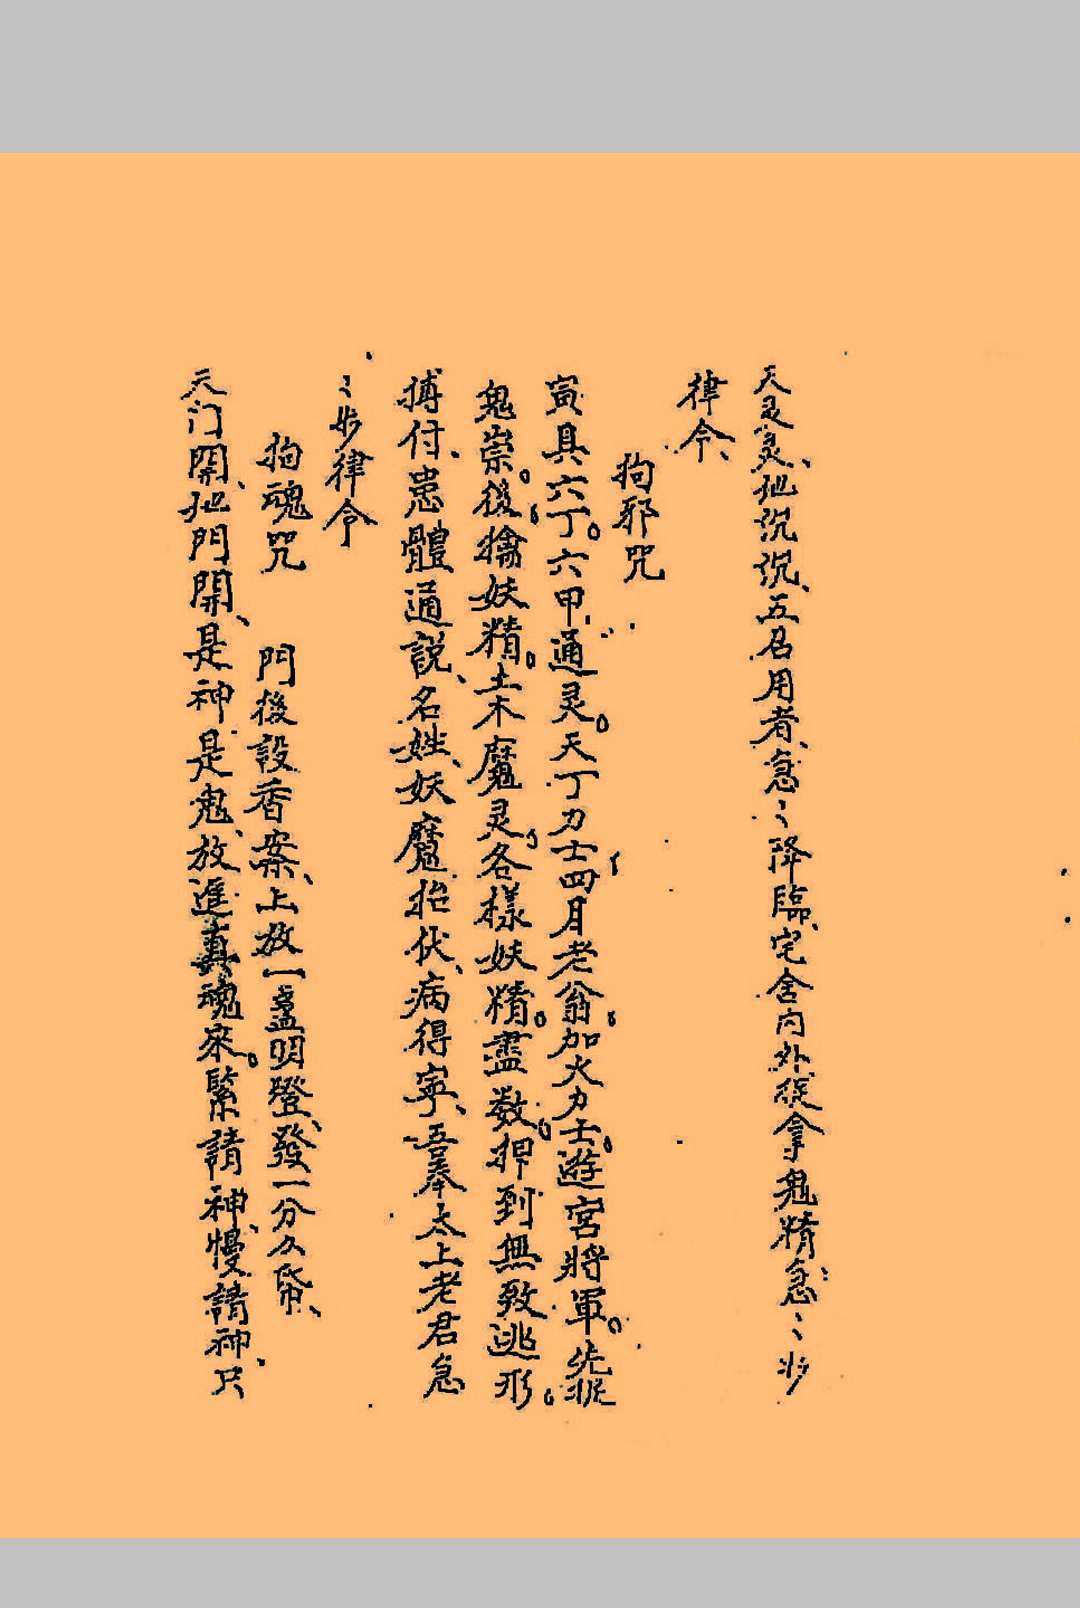 天灵灵、地沉沉、五召用者、急〻降臨、宅舍内外捉拿鬼精急〻步
律令、
拘邪咒
寅具六丁。六甲通灵。天丁力士四月老翁。加火力士。遊宮將軍。先捉
鬼祟。後擒妖精。土木魔灵。各樣妖精。盡数。押到無致逃形。
搏付、患體通説、名姓、妖魔抬伏、病得寧、吾奉太上老君急
〻步律令
拘魂咒 門後設香案、上放一盞明燈、發一分久帋、
天门開、地門開、是神是鬼、放進真魂來。緊請神、慢請神、只